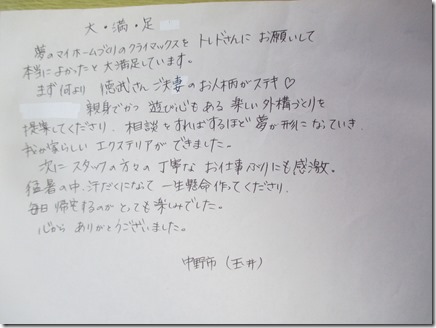 大・満・足
夢のマイホームづくりのクライマックスを トレドさんに お願いして
本当によかったと 大満足しています。
まず何より 徳武さん ご夫妻のお人柄がステキ♡
親身でかつ 遊び心もある 楽しい外構づくりを
提案してくださり、相談をすればするほど 夢が形になっていき
我が家らしい エクステリアが できました。
次に スタッフの方々の 丁寧な お仕事ぶりにも感激。
猛暑の中、汗だくになって 一生懸命作ってくださり、
毎日 帰宅するのが とっても 楽しみでした。
心から ありがとうございました。
中野市（玉井）